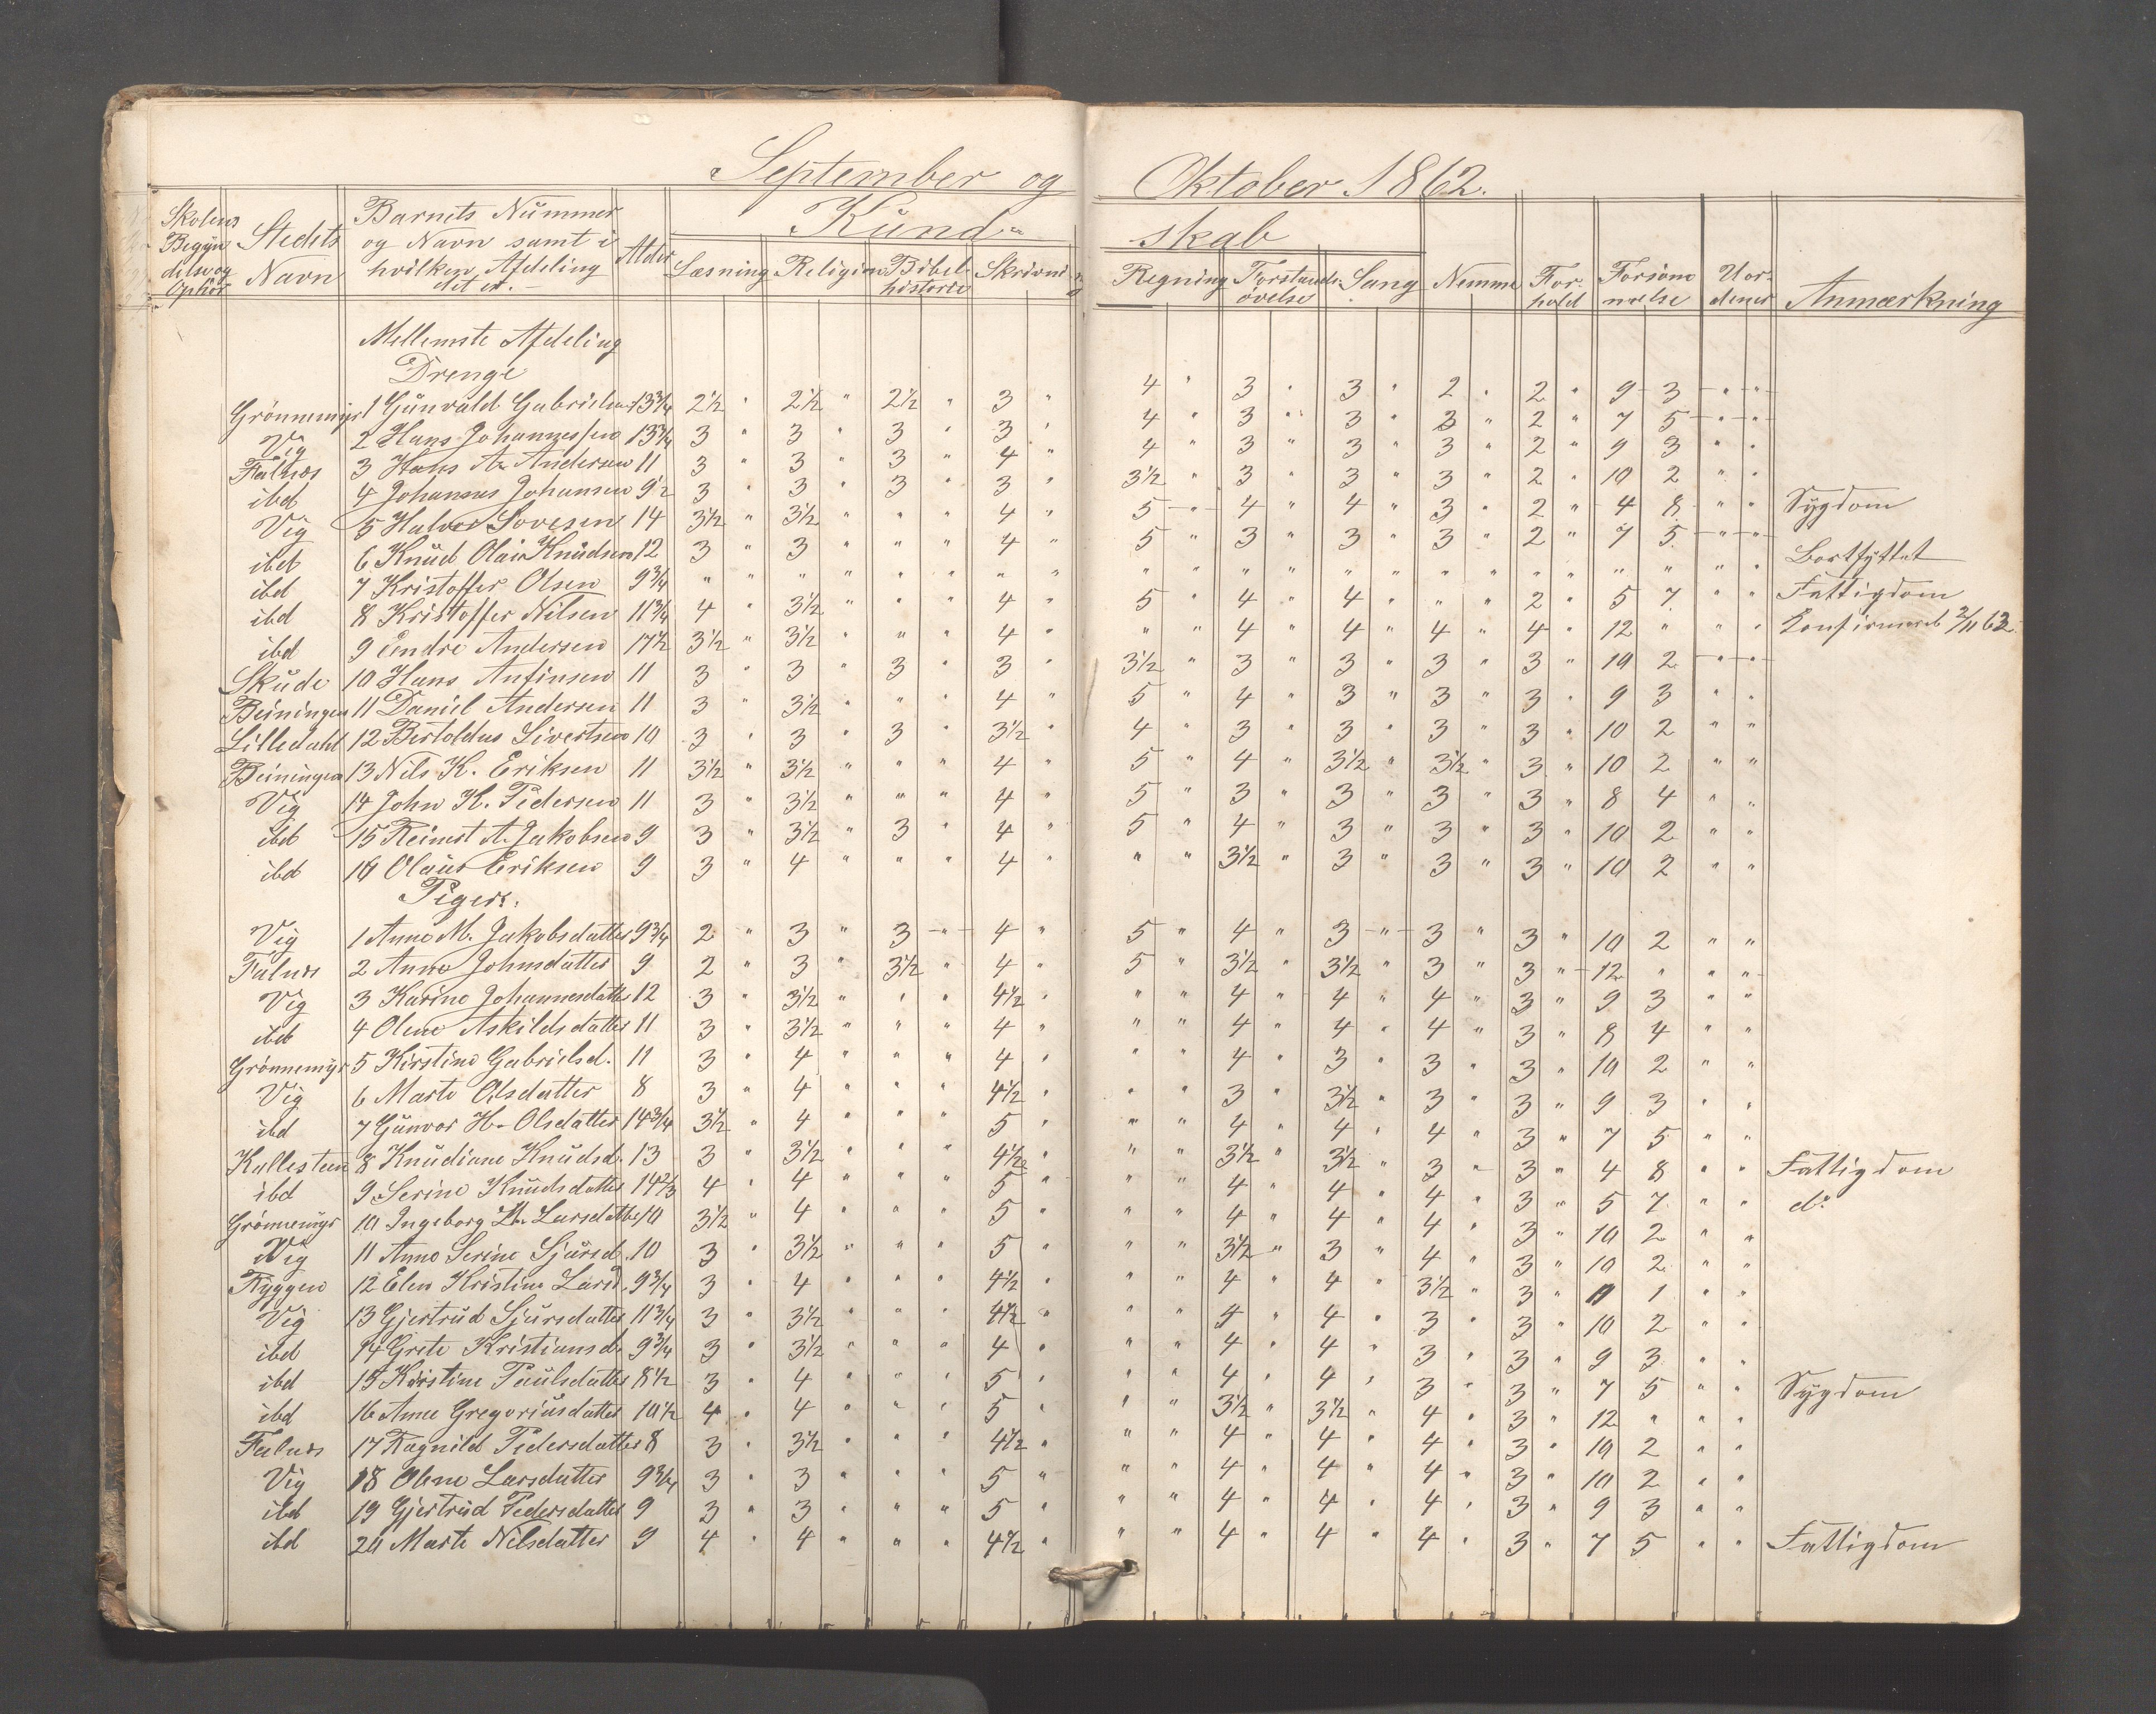 September og Oktober 1862.
Skolens Begyndelse og Ophör | Stedets Navn | Barnets Nummer og Navn samt i hvilken Afdeling det er. | Alder | Kund- skab | Læsning | Religion | Bibelhistorie | Skrivning | Regning | Forstandsövelse | Sang | Nemme | Forhold | Forsömmelse | Uordener | Anmærkning
Mellemste Afdeling
Drenge
Grönnemyr 1 Gunvald Gabrielsen 13 3/4 2 1/2 " 2 1/2 " 2 1/2 " 3 " 4 " 3 " 3 " 2 " 2 " 9 3 " "
Vig 2 Hans Johannessen 13 3/4 3 " 3 " 3 " 3 " 4 " 3 " 3 " 3 " 2 " 7 5 " "
Falnæs 3 Hans A. Andersen 11 3 " 3 " 3 " 4 " 4 " 3 " 3 " 3 " 2 " 9 3 " "
ibd 4 Johannes Johansen 9 1/2 3 " 3 " 3 " 3 " 3 1/2 " 3 " 3 " 3 " 2 " 10 2 " "
Vig 5 Halvor Sovesen 14 3 1/2 " 3 1/2 " " " 4 " 5 " 4 " 4 " 3 " 2 " 4 8 " " Sygdom
ibd 6 Knud Olai Knudsen 12 3 " 3 " " " 4 " 5 " 3 " 3 " 3 " 2 " 7 5 " "
ibd 7 Kristoffer Olsen 9 3/4 " " " " " " " " " " " " " " " " " " " " " " Bortfyttet
ibd 8 Kristoffer Nilsen 11 3/4 4 " 3 1/2 " " " 4 " 5 " 4 " 4 " " " 2 " 5 7 " " Fattigdom
ibd 9 Endre Andersen 17 1/2 3 1/2 " 3 1/2 " " " 4 " " " 4 " 4 " 4 " 4 " 12 " " " Konfirmeret 2/11 62
Skude 10 Hans Anfinsen 11 3 " 3 " 3 " 3 " 3 1/2 " 3 " 3 " 3 " 3 " 10 2 " "
Beiningen 11 Daniel Andersen 11 3 " 3 1/2 " " " 4 " 5 " 4 " 3 " 3 " 3 " 9 3 " "
Lilledahl 12 Bertoldus Sivertsen 10 3 " 3 " 3 " 3 1/2 " 4 " 3 " 3 " 3 " 3 " 10 2 " "
Beiningen 13 Nils K. Eriksen 11 3 1/2 " 3 1/2 " " " 4 " 5 " 4 " 3 1/2 " 3 1/2 " 3 " 10 2 " "
Vig 14 John K. Pedersen 11 3 " 3 1/2 " " " 4 " 5 " 3 " 3 " 3 " 3 " 8 4 " "
ibd 15 Reinert A. Jakobsen 9 3 " 3 1/2 " 3 " 4 " 5 " 4 " 3 " 3 " 3 " 10 2 " "
ibd 16 Olaus Eriksen 9 3 " 4 " " " 4 " " " 3 1/2 " 3 " 3 " 3 " 10 2 " "
Piger.
Vig 1 Anne M. Jakobsdatter 9 3/4 2 " 3 " 3 " 4 " 5 " 4 " 3 " 3 " 3 " 10 2 " "
Falnæs 2 Anne Johnsdatter 9 2 " 3 " 3 1/2 " 4 " 5 " 3 1/2 " 3 1/2 " 3 " 3 " 12 " " "
Vig 3 Karine Johannesdatter 12 3 " 3 1/2 " " " 4 1/2 " " " 4 " 4 " 4 " 3 " 9 3 " "
ibd 4 Olene Askildsdatter 11 3 " 3 1/2 " " " 4 " " " 4 " 4 " 4 " 3 " 8 4 " "
Grönnemyr 5 Kirstine Gabrielsd. 11 3 " 4 " " " 4 " " " 4 " 3 " 3 " 3 " 10 2 " "
Vig 6 Marte Olsdatter 8 3 " 4 " " " 4 1/2 " " " 3 " 3 1/2 " 3 " 3 " 9 3 " "
ibd 7 Gunvor H. Olsdatter 14 3/4 3 1/2 " 4 " " " 5 " " " 4 " 4 " 4 " 3 " 7 5 " "
Kallesteen 8 Knudiane Knudsd. 13 3 " 3 1/2 " " " 4 1/2 " " " 3 1/2 " 3 1/2 " 3 " 3 " 4 8 " " Fattigdom
ibd 9 Serine Knudsdatter 14 2/3 4 " 4 " " " 5 " " " 4 " 4 " 4 " 3 " 5 7 " " do
Grönnemyr 10 Ingeborg Larsdatter 10 3 1/2 " 4 " " " 5 " " " 4 " 4 " 4 " 3 " 10 2 " "
Vig 11 Anne Serine Sjursd. 10 3 " 3 1/2 " " " 5 " " " 3 1/2 " 3 " 4 " 3 " 10 2 " "
Ryggen 12 Elen Kristine Larsd. 9 3/4 3 " 4 " " " 4 1/2 " " " 4 " 4 " 3 1/2 " 3 " 11 1 " "
Vig 13 Gjertrud Sjursdatter 11 3/4 3 " 3 1/2 " " " 4 1/2 " " " 4 " 4 " 3 " 3 " 10 2 " "
ibd 14 Grete Kristiansd. 9 3/4 3 " 3 1/2 " " " 4 " " " 4 " 4 " 3 " 3 " 9 3 " "
ibd 15 Kirstine Paulsdatter 8 1/2 3 " 4 " " " 5 " " " 4 " 4 " 3 " 3 " 7 5 " " Sygdom
ibd 16 Anne Gregoriusdatter 10 1/2 4 " 4 " " " 5 " " " 3 1/2 " 3 1/2 " 4 " 3 " 12 " " "
Falnæs 17 Ragnild Pedersdatter 8 3 " 3 1/2 " " " 4 1/2 " " " 4 " 4 " 4 " 3 " 10 2 " "
Vig 18 Olene Larsdatter 9 3/4 3 " 3 " " " 5 " " " 4 " 4 " 4 " 3 " 10 2 " "
ibd 19 Gjertrud Pedersdatter 9 3 " 3 " " " 5 " " " 4 " 4 " 4 " 3 " 9 3 " "
ibd 20 Marte Nilsdatter 9 4 " 4 " " " 4 1/2 " " " 4 " 4 " 4 " 3 " 7 5 " " Fattigdom